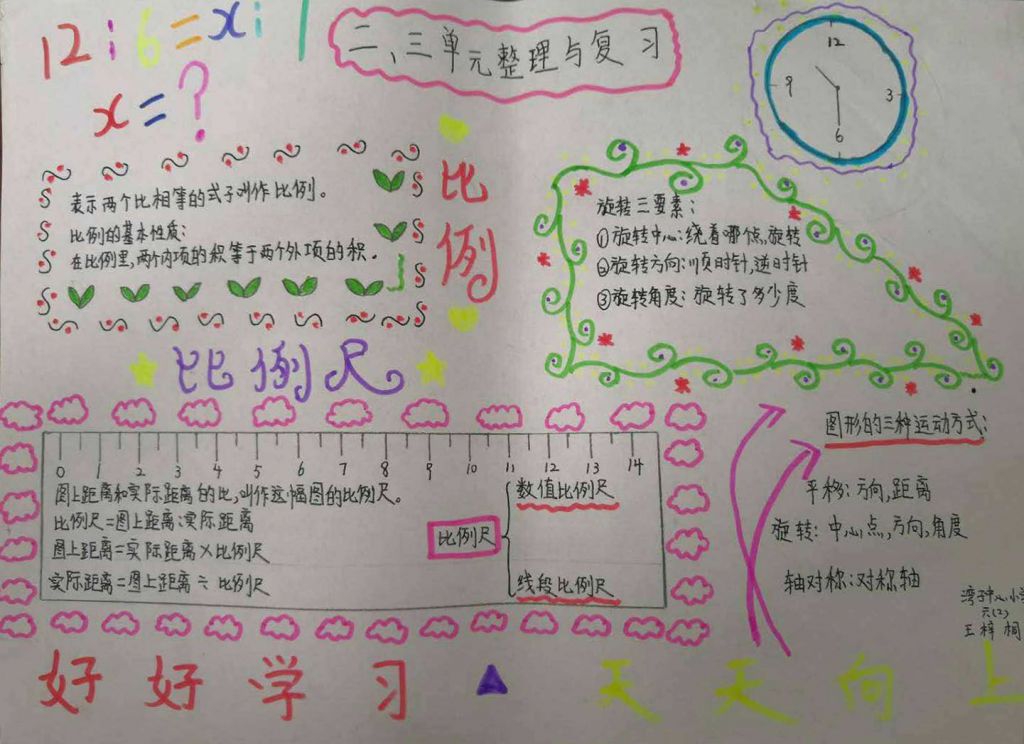 12:6=x:1
x=?
二、三单元整理与复习
12
9
3
6
表示两个比相等的式子叫作比例。
比例的基本性质:
在比例里,两个内项的积等于两个外项的积.
比例
旋转三要素:
①旋转中心:绕着哪个点旋转
②旋转方向:顺时针,逆时针
③旋转角度:旋转了多少度
比例尺
0 1 2 3 4 5 6 7 8 9 10 11 12 13 14
图上距离和实际距离的比,叫作这幅图的比例尺。
比例尺=图上距离:实际距离
图上距离=实际距离×比例尺
实际距离=图上距离÷比例尺
比例尺
数值比例尺
线段比例尺
图形的三种运动方式:
平移:方向,距离
旋转:中心点,方向,角度
轴对称:对称轴
湾子中心小学
六(2)
王梓桐
好好学习 天天向上